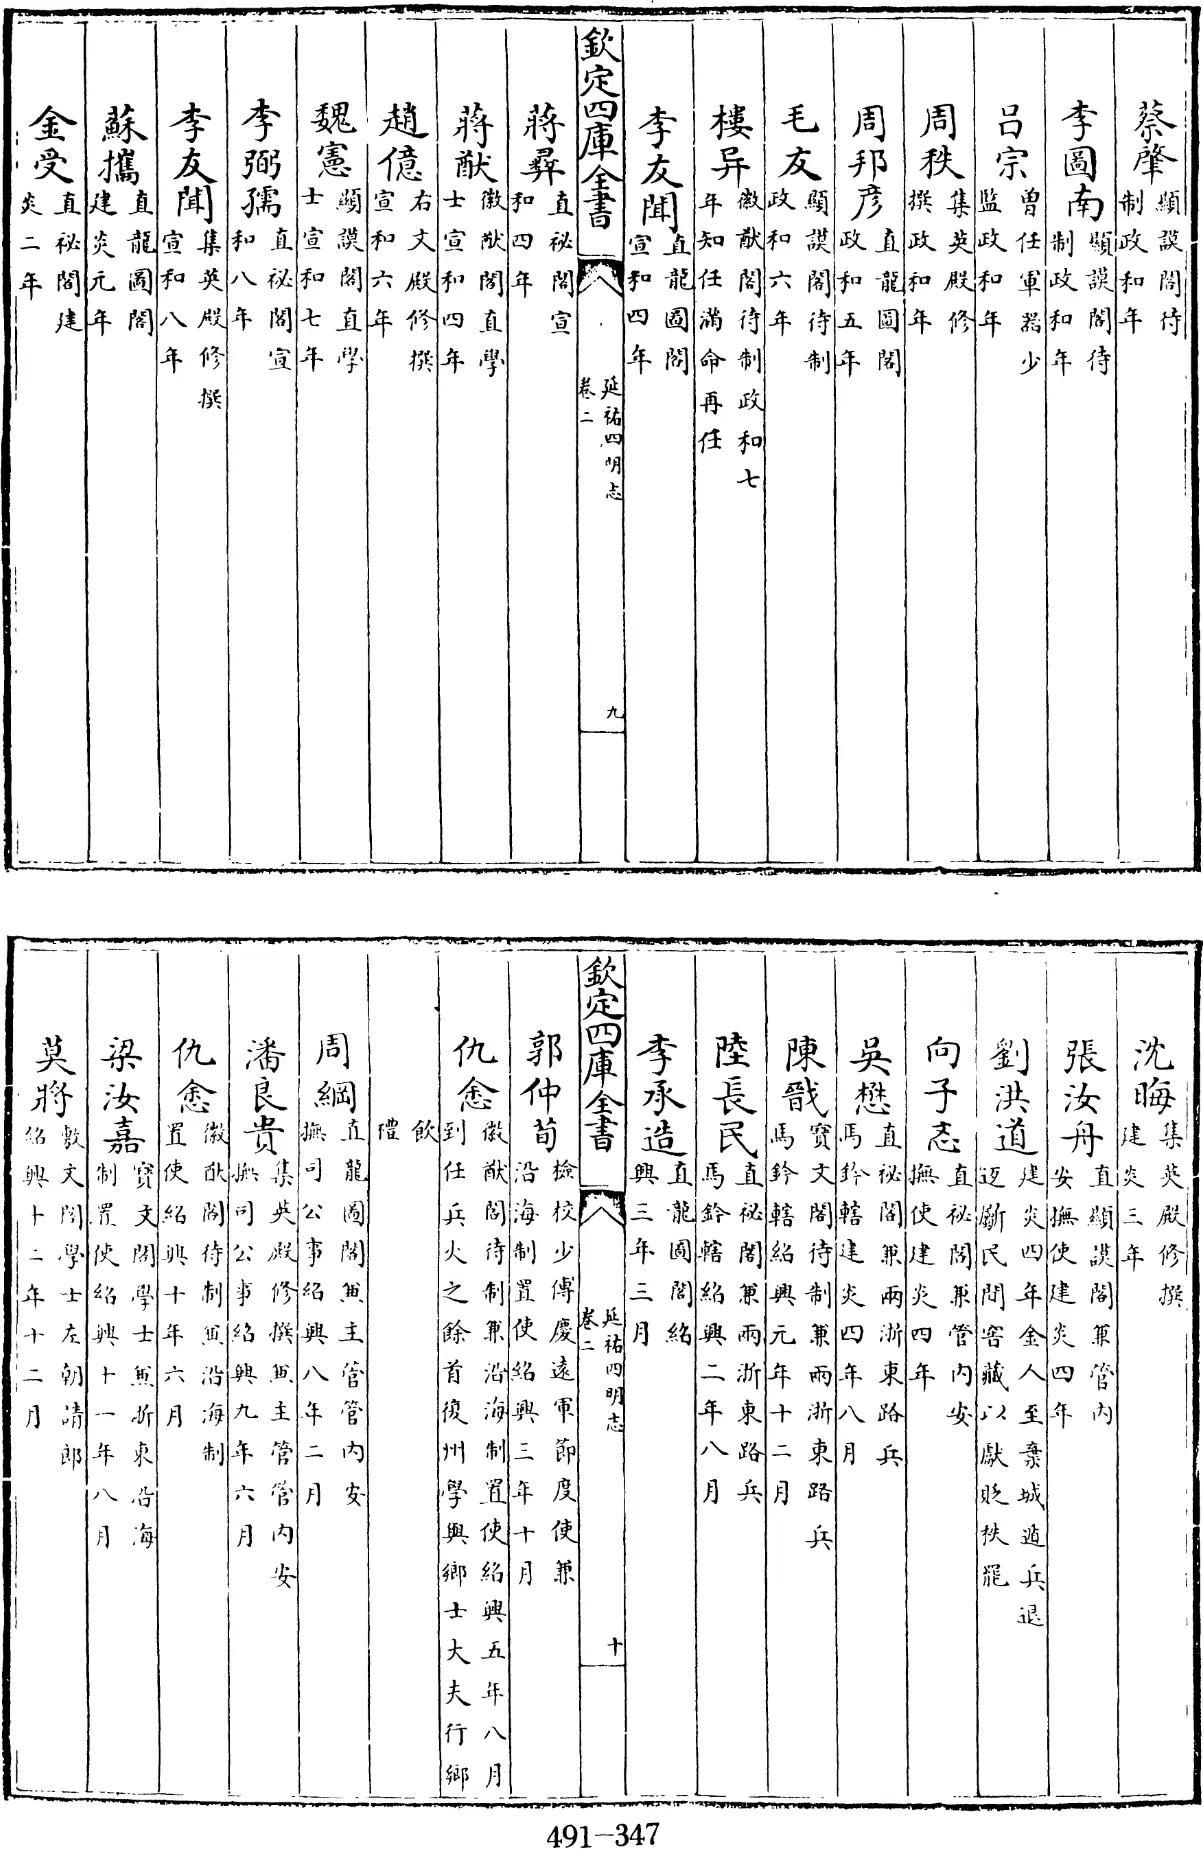 蔡肇顯謨閣待制政和年
李圖南顯謨閣待制政和年
吕宗曽任軍器少監政和年
周秩集英殿修撰政和年
周邦彦直龍圖閣政和五年
毛友顯謨閣待制政和六年
樓异徽猷閣待制政和七年知任滿命再任
李友聞直龍圖閣宣和四年
欽定四庫全書
延祐四明志
卷二
九
蔣彛直祕閣宣和四年
蔣猷徽猷閣直學士宣和四年
趙億右文殿修撰宣和六年
魏憲顯謨閣直學士宣和七年
李弼孺直祕閣宣和八年
李友聞集英殿修撰宣和八年
蘇攜直龍圖閣建炎元年
金受直祕閣建炎二年
沈晦集英殿修撰建炎三年
張汝舟直顯謨閣兼管内安撫使建炎四年
劉洪道建炎四年金人至棄城遁兵退迺斸民間窖藏以獻貶秩罷
向子忞直祕閣兼管内安撫使建炎四年
吳懋直祕閣兼兩浙東路兵馬鈐轄建炎四年八月
陳戩寳文閣待制兼兩浙東路兵馬鈐轄紹興元年十二月
陸長民直祕閣兼兩浙東路兵馬鈐轄紹興二年八月
李承造直龍圖閣紹興三年三月
欽定四庫全書
延祐四明志
卷二
十
郭仲荀檢校少傅慶遠軍節度使兼沿海制置使紹興三年十月
仇悆徽猷閣待制兼沿海制置使紹興五年八月到任兵火之餘首復州學與鄉士大夫行鄉
飲禮
周綱直龍圖閣兼主管内安撫司公事紹興八年二月
潘良貴集英殿修撰兼主管管内安撫司公事紹興九年六月
仇悆徽猷閣待制兼沿海制置使紹興十年六月
梁汝嘉寳文閣學士兼浙東沿海制置使紹興十一年八月
莫將敷文閣學士左朝請郎紹興十二年十二月
491-347